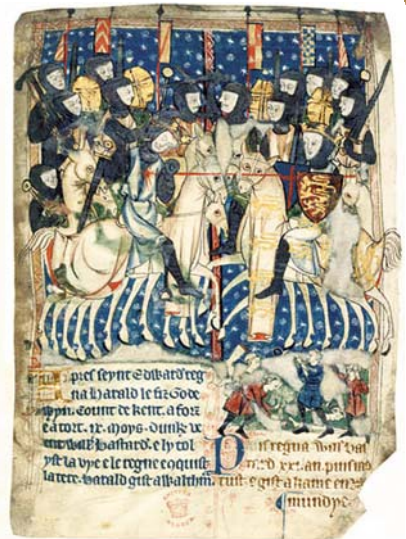 pres seynt Edward reg
na Harald le fiz Gode
wyn. Counte de kent. a forz
e a tort. ix. moys. dunk ve
ent Will Bastard. e ly tol
yst la vye e le regne e conquist
la tere. Harald gist a Waltham.
Puis regna Will bas
tard xxi. an. puis
rust e gist a hame en
mundye